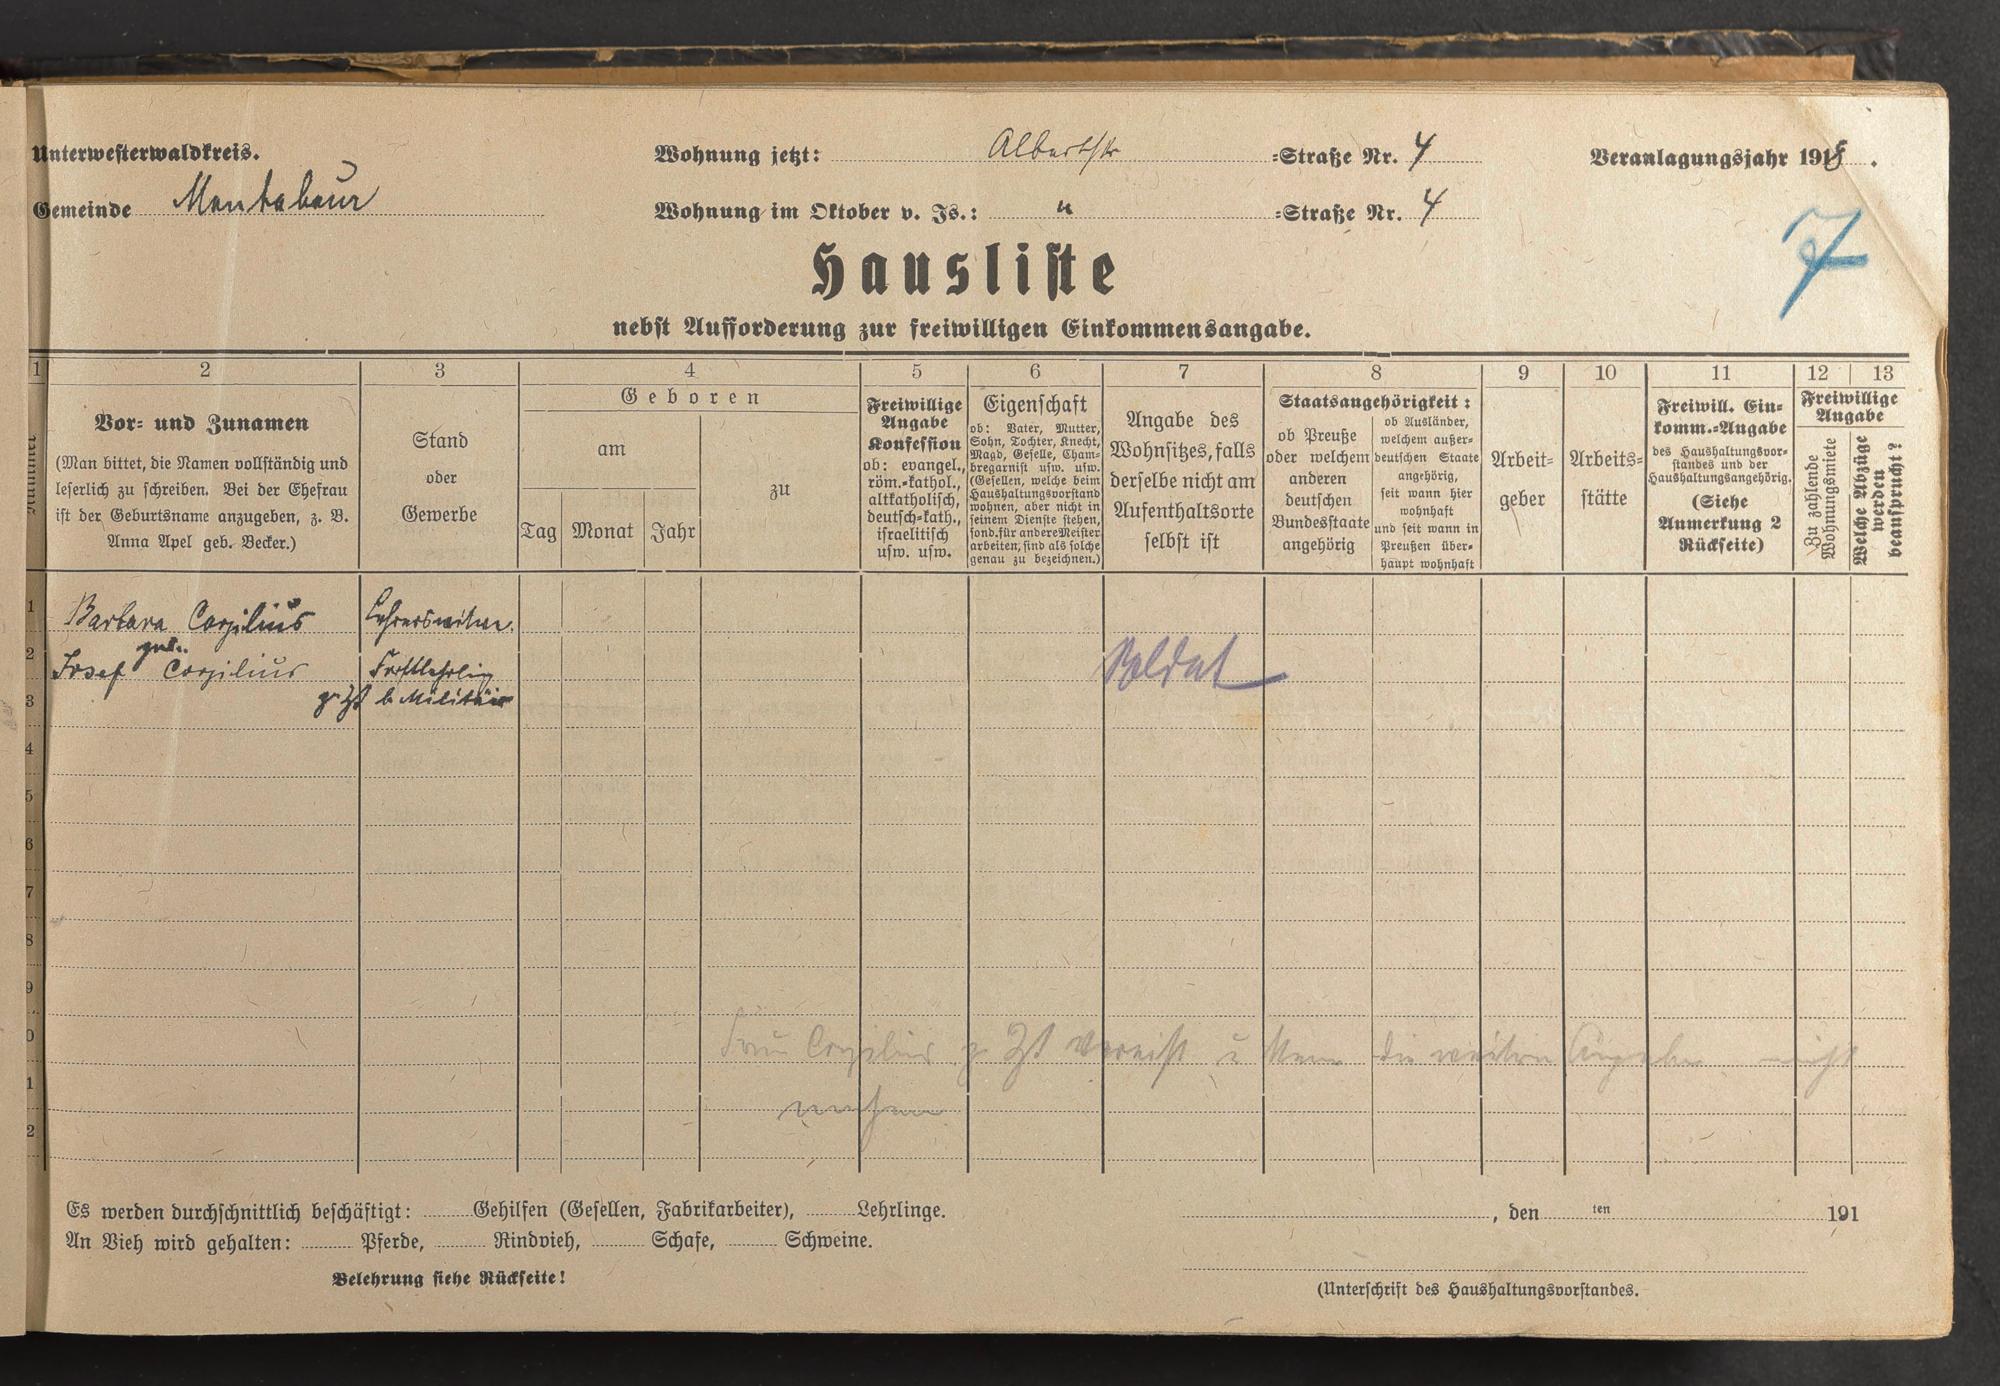 Unterwesterwaldkreis.
Wohnung jetzt: Albertstr =Straße Nr. 4
Veranlagungsjahr 1918.
Gemeinde Montabaur
Wohnung im Oktober v. Js.: " =Straße Nr. 4
7
Hausliste
nebst Aufforderung zur freiwilligen Einkommensangabe.
1 2 3 4 5 6 7 8 9 10 11 12 13
Nummer
Vor= und Zunamen
(Man bittet, die Namen vollständig und
leserlich zu schreiben. Bei der Ehefrau
ist der Geburtsname anzugeben, z. B.
Anna Apel geb. Becker.)
Stand
oder
Gewerbe
Geboren
am
Tag Monat Jahr
zu
Freiwillige
Angabe
Konfession
ob: evangel.,
röm.=kathol.,
altkatholisch,
deutsch=kath.,
israelitisch
usw. usw.
Eigenschaft
ob: Vater, Mutter,
Sohn, Tochter, Knecht,
Magd, Geselle, Cham=
bregarnist usw. usw.
(Gesellen, welche beim
Haushaltungsvorstand
wohnen, aber nicht in
seinem Dienste stehen,
sond. für andere Meister
arbeiten, sind als solche
genau zu bezeichnen.)
Angabe des
Wohnsitzes, falls
derselbe nicht am
Aufenthaltsorte
selbst ist
Staatsangehörigkeit:
ob Preuße
oder welchem
anderen
deutschen
Bundesstaate
angehörig
ob Ausländer,
welchem außer=
deutschen Staate
angehörig,
seit wann hier
wohnhaft
und seit wann in
Preußen über=
haupt wohnhaft
Arbeit=
geber
Arbeits=
stätte
Freiwill. Ein=
komm.=Angabe
des Haushaltungsvor=
standes und der
Haushaltungsangehörig.
(Siehe
Anmerkung 2
Rückseite)
Freiwillige
Angabe
Zu zahlende
Wohnungsmiete
Welche Abzüge
werden
beansprucht?
1 Barbara Corzilius Lehrerswitwe.
2 Josef Corzilius Forstlehrling Soldat
3 z. Zt b. Militär
4
5
6
7
8
9
0 Frau Corzilius z Zt verreist u kann die weitern Angaben nicht
1 machen
2
Es werden durchschnittlich beschäftigt: Gehilfen (Gesellen, Fabrikarbeiter), Lehrlinge.
An Vieh wird gehalten: Pferde, Rindvieh, Schafe, Schweine.
Belehrung siehe Rückseite!
, den ten 191
(Unterschrift des Haushaltungsvorstandes.